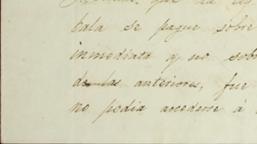 que la ley
bala se pague sobre
inmediata y no sob
de las anteriores, fue
no podia accederse á